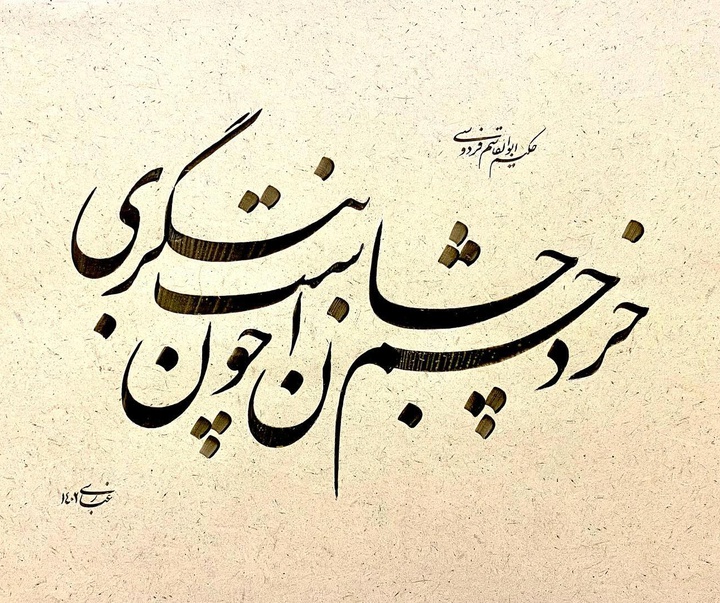 حکیم ابوالقاسم فردوسی
خرد چشم جان است چون بنگری
غباری